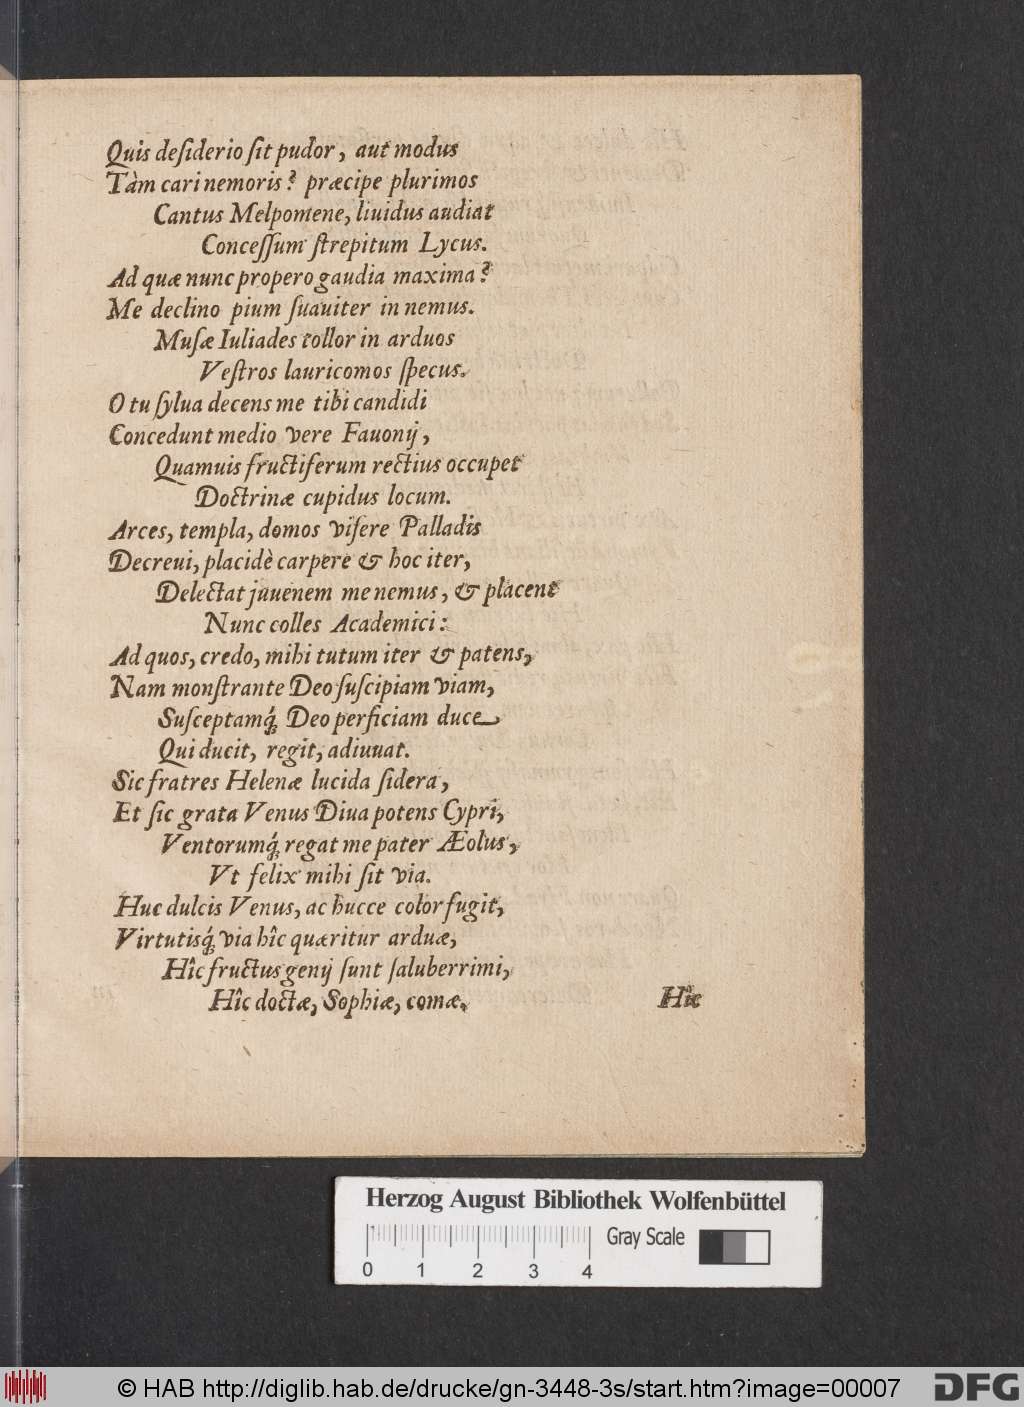 Quis deſiderio ſit pudor, aut modus
Tàm cari nemoris? præcipe plurimos
Cantus Melpomene, liuidus audiat
Conceſſum ſtrepitum Lycus.
Ad quæ nunc propero gaudia maxima?
Me declino pium ſuauiter in nemus.
Muſæ Iuliades tollor in arduos
Veſtros lauricomos ſpecus.
O tu ſylua decens me tibi candidi
Concedunt medio vere Fauonij,
Quamuis fructiferum rectius occupet
Doctrinæ cupidus locum.
Arces, templa, domos viſere Palladis
Decreui, placidè carpere & hoc iter,
Delectat juuenem me nemus, & placent
Nunc colles Academici:
Ad quos, credo, mihi tutum iter & patens,
Nam monſtrante Deo ſuſcipiam viam,
Suſceptamq́; Deo perficiam duce
Qui ducit, regit, adiuuat.
Sic fratres Helenæ lucida ſidera,
Et ſic grata Venus Diua potens Cypri,
Ventorumq́; regat me pater Æolus,
Vt felix mihi ſit via.
Huc dulcis Venus, ac hucce color fugit,
Virtutisq́; via hîc quæritur arduæ,
Hîc fructus genij ſunt ſaluberrimi,
Hîc doctæ, Sophiæ, comæ.
Hîc
Herzog August Bibliothek Wolfenbüttel
Gray Scale
0 1 2 3 4
© HAB http://diglib.hab.de/drucke/gn-3448-3s/start.htm?image=00007
DFG